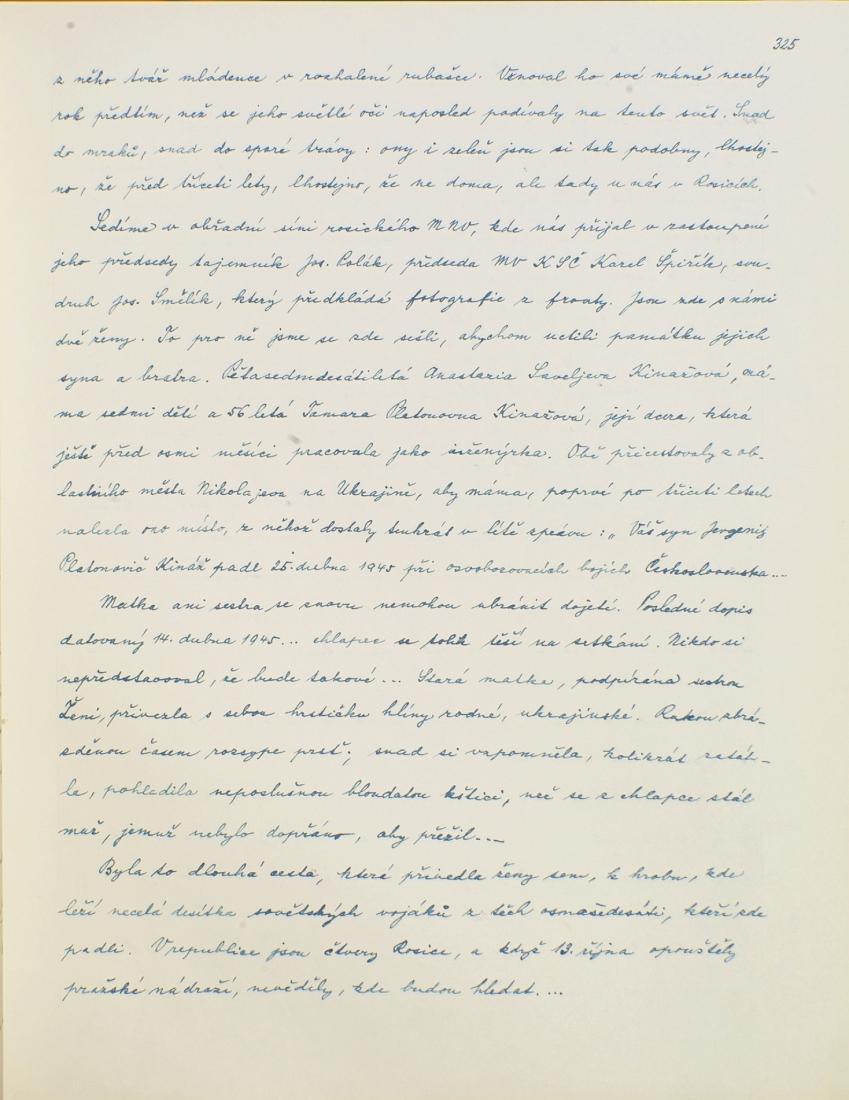 325
z něho tvář mládence v rozhalené rubašce. Věnoval ho své mámě necelý
rok předtím, než se jeho světlé oči naposled podívaly na tento svět. Snad
do mraků, snad do sporé trávy: ony i zeleň jsou si tak podobny, lhostej-
no, že před třiceti lety, lhostejno, že ne doma, ale tady u nás v Rosicích.
Sedíme v obřadní síni rosického MNV, kde nás přijal v zastoupení
jeho předsedy tajemník Jos. Polák, předseda MV KSČ Karel Špiřík, sou-
druh Jos. Smělík, který předkládá fotografie z fronty. Jsou zde s námi
dvě ženy. To pro ně jsme se zde sešli, abychom uctili památku jejich
syna a bratra. Pětasedmdesátiletá Anastazia Saveljeva Kinažová, má-
ma sedmi dětí a 56 letá Tamara Platonovna Kinažová, její dcera, která
ještě před osmi měsíci pracovala jako inženýrka. Obě přicestovaly z ob-
lastního města Nikolajeva na Ukrajině, aby máma, poprvé po třiceti letech
nalezla ono místo, z něhož dostaly tenkrát v létě zprávu: „Váš syn Jevgenij
Platonovič Kináž padl 25. dubna 1945 při osvobozovacích bojích Československa...
Matka ani sestra se znovu nemohou ubránit dojetí. Poslední dopis
datovaný 14. dubna 1945... chlapec se tolik těší na setkání. Nikdo si
nepředstavoval, že bude takové... Stará matka, podpírána sestrou
Ženi, přivezla s sebou hrstičku hlíny rodné, ukrajinské. Rukou zbrá-
zděnou časem rozsype prsť; snad si vzpomněla, kolikrát zatáh-
la, pohladila neposlušnou blonďatou kštici, než se z chlapce stál
muž, jemuž nebylo dopřáno, aby přežil...
Byla to dlouhá cesta, která přivedla ženy sem, k hrobu, kde
leží necelá desítka sovětských vojáků z těch osmašedesáti, kteří zde
padli. V republice jsou čtvery Rosice, a když 13. října opouštěly
pražské nádraží, nevěděly, kde budou hledat....